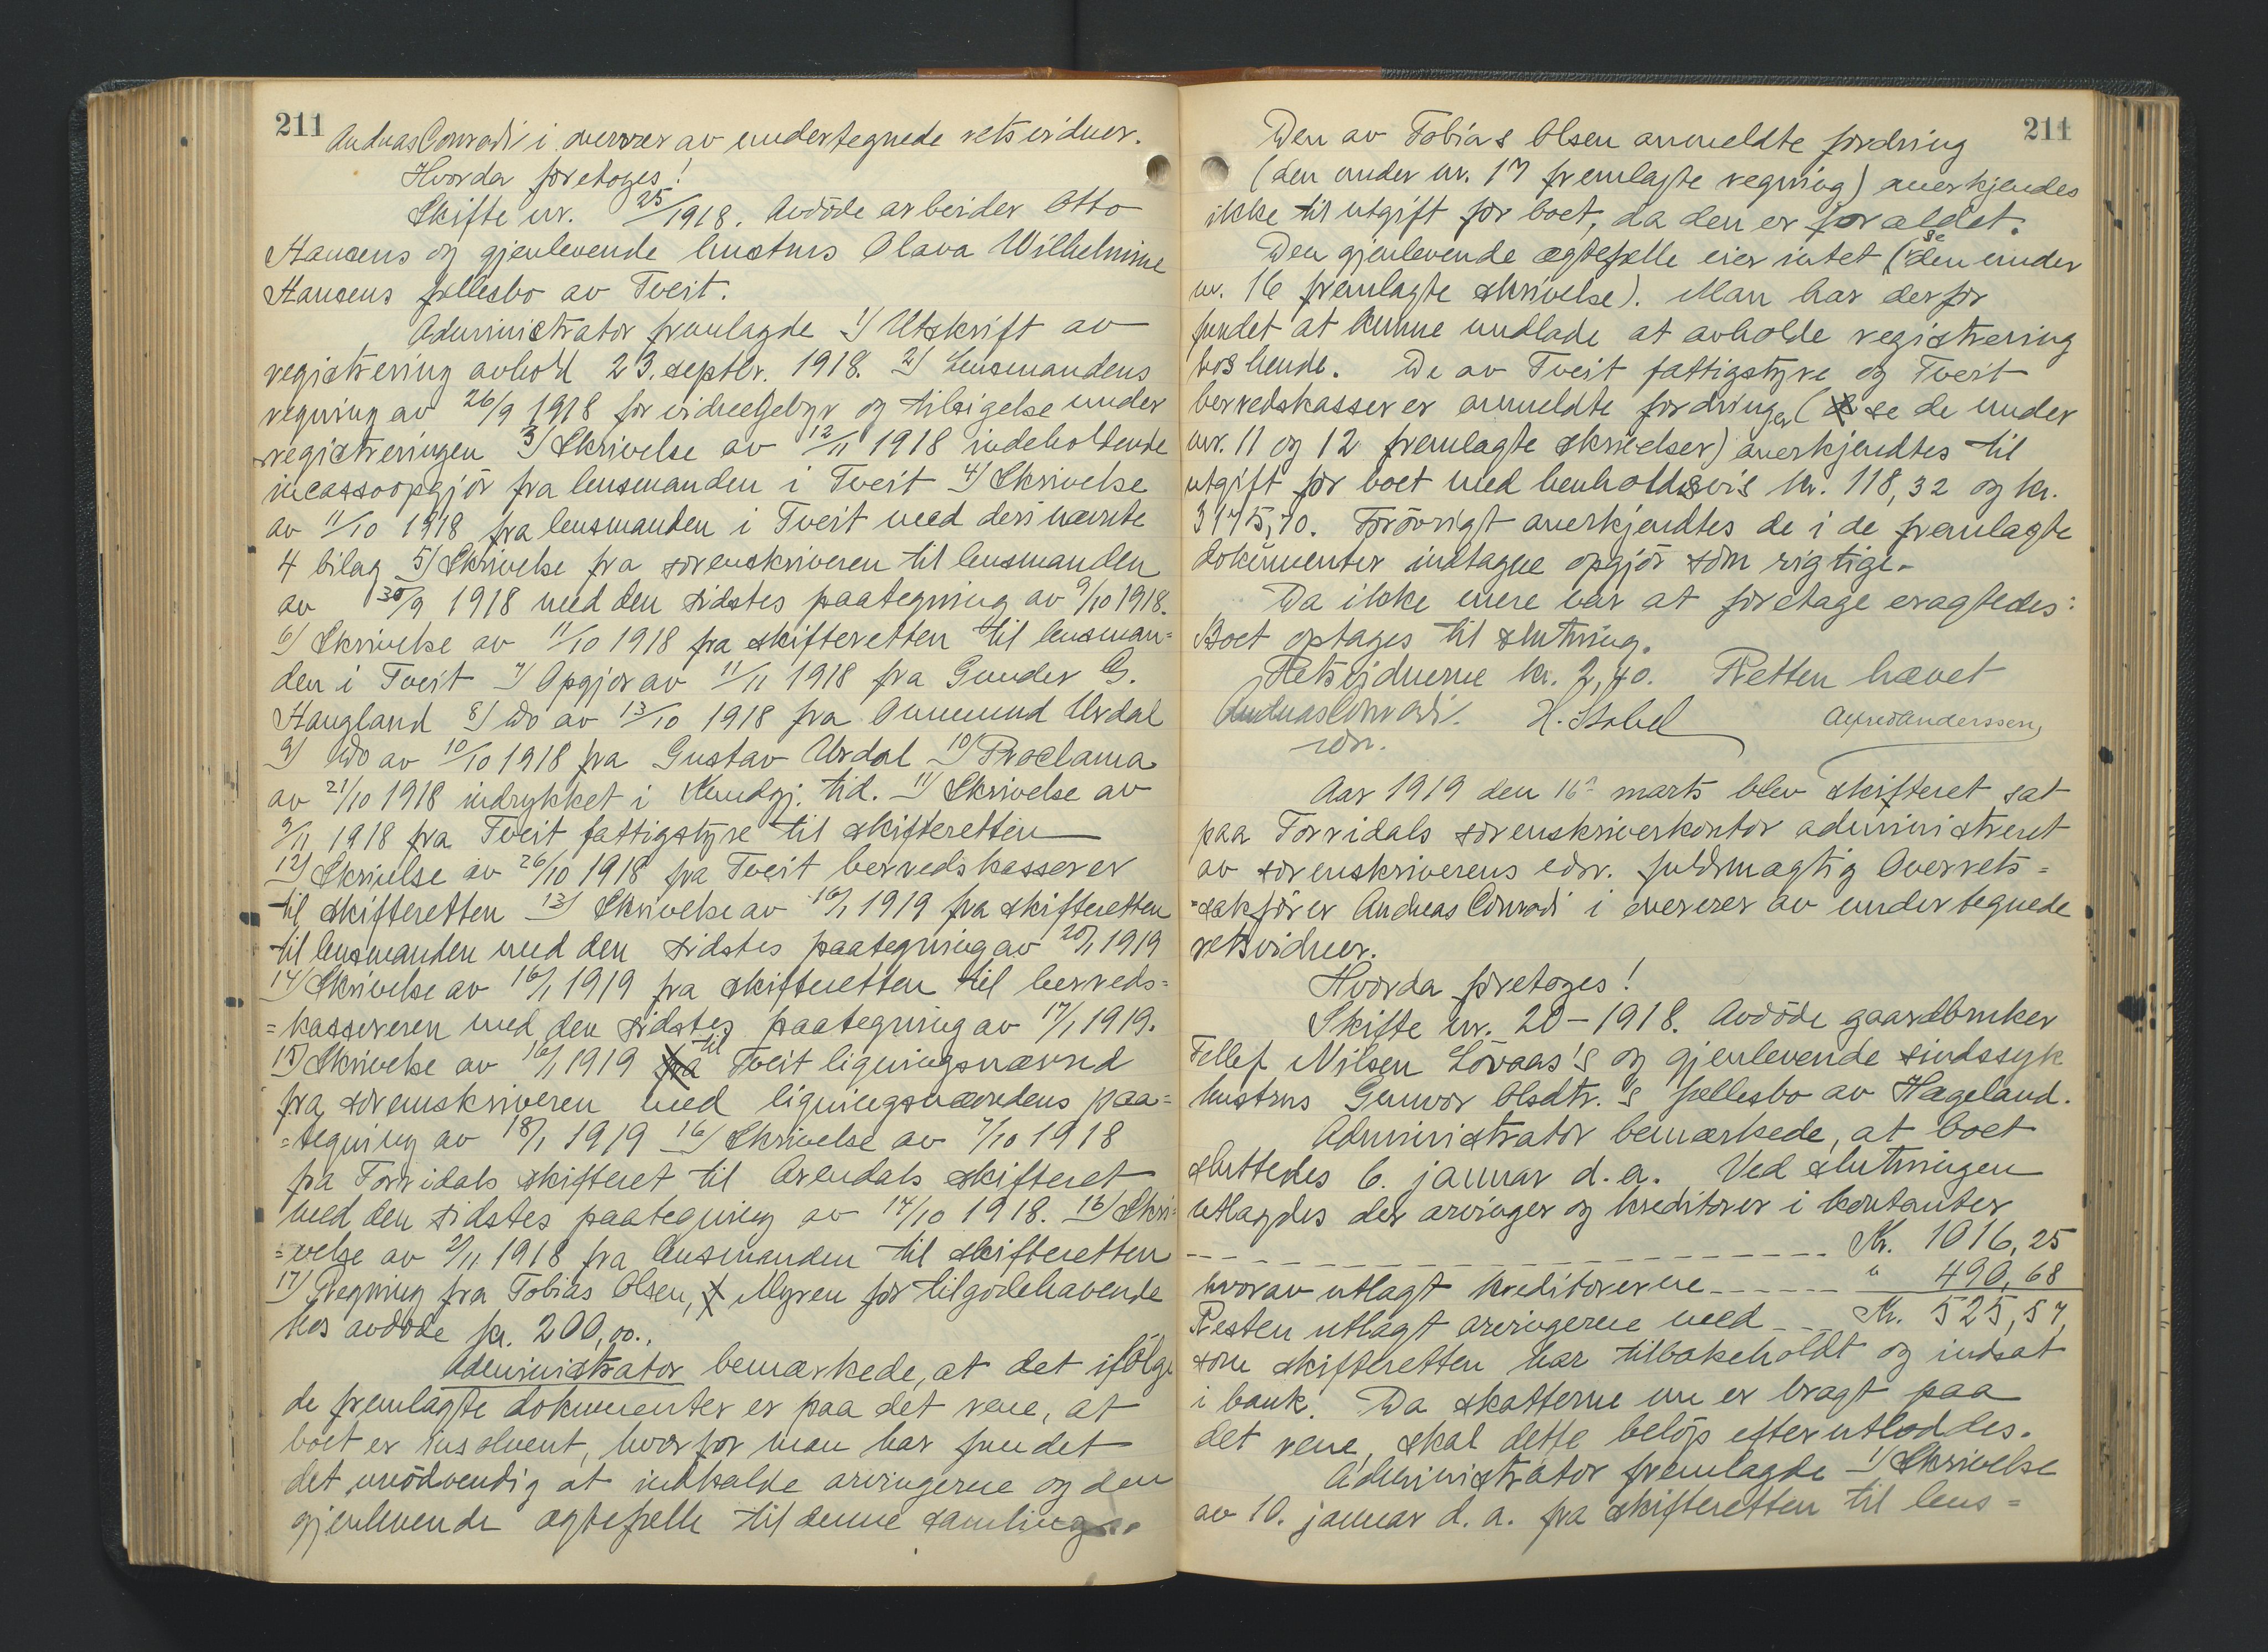 211
Andreas Conradi i overvær av undertegnede retsvidner.
Hvorda foretoges!
Skifte nr. 25/1918. Avdöde arbeider Otto
Hansens og gjenlevende hustrus Olava Wilhelmine
Hansens fellesbo av Tveit.
Administrator fremlagde 1) Utskrift av
registrering avhold 23. septbr. 1918. 2) Lensmandens
regning av 26/9 1918 for vidnegebyr og tilsigelse under
registreringen 3) Skrivelse av 12/11 1918 indeholdende
incassoopgjör fra lensmanden i Tveit 4) Skrivelse
av 11/10 1918 fra lensmanden i Tveit med deri nævnte
4 bilag 5) Skrivelse fra sorenskriveren til lensmanden
av 30/9 1918 med den sidstes paategning av 9/10 1918.
6) Skrivelse av 11/10 1918 fra skifteretten til lensman=
den i Tveit 7) Opgjör av 11/11 1918 fra Gunder G.
Haugland 8) Do av 13/10 1918 fra Ommund Urdal
9) Do av 10/10 1918 fra Gustav Urdal 10) Proclama
av 21/10 1918 indrykket i Kundgj. tid. 11) Skrivelse av
9/11 1918 fra Tveit fattigstyre til skifteretten
12) Skrivelse av 26/10 1918 fra Tveit herredskasserer
til skifteretten 13) Skrivelse av 16/1 1919 fra skifteretten
til lensmanden med den sidstes paategning av 20/1 1919
14) Skrivelse av 16/1 1919 fra skifteretten til herreds=
=kassereren med den sidstes paategning av 17/1 1919.
15) Skrivelse av 16/1 1919 til Tveit ligningsnævnd
fra sorenskriveren med ligningsnævndens paa=
=tegning av 18/1 1919 16) Skrivelse av 7/10 1918
fra Torridals skifteret til Arendals skifteret
med den sidstes paategning av 14/10 1918. 16) Skri=
=velse av 2/11 1918 fra lensmanden til skifteretten
17) Regning fra Tobias Olsen, Myren for tilgodehavende
hos avdöde kr. 200,00.
Administrator bemærkede, at det ifölge
de fremlagte dokumenter er paa det rene, at
boet er insolvent, hvorfor man har fundet
det unödvendig at indkalde arvingerne og den
gjenlevende ægtefælle til denne samling.
211
Den av Tobias Olsen anmeldte fordring
(den under nr. 17 fremlagte regning) anerkjendes
ikke til utgift for boet, da den er foraldet.
Den gjenlevende ægtefælle eier intet (se den under
nr. 16 fremlagte skrivelse). Man har derfor
fundet at kunne undlade at avholde registrering
hos hende. De av Tveit fattigstyre og Tveit
herredskasserer anmeldte fordringer (se de under
nr. 11 og 12 fremlagte skrivelser) anerkjendtes til
utgift for boet med henholdsvis kr. 118,32 og kr.
3175,70. Forövrigt anerkjendtes de i de fremlagte
dokumenter indtagne opgjör som rigtige.
Da ikke mere var at foretage eragtedes:
Boet optages til slutning.
Retsvidnerne kr. 2,40. Retten hævet
Andreas Conradi. H. Stabel Alfred Anderssen,
edsv.
Aar 1919 den 16n marts blev skifteret sat
paa Torridals sorenskriverkontor administreret
av sorenskriverens edsv. fuldmægtig Overrets=
=sakförer Andreas Conradi i overvær av undertegnede
retsvidner.
Hvorda foretoges!
Skifte nr. 20-1918. Avdöde gaardbruker
Tellef Nilsen Lövaas's og gjenlevende sindssyk
hustrus Gunvor Olsdtr.'s fellesbo av Hægeland.
Administrator bemærkede, at boet
sluttedes 6. januar d.a. Ved slutningen
utlagdes der arvinger og kreditorer i kontanter
--------------------- Kr. 1016,25
hvorav utlagt kreditorerne------ " 490,68
Resten utlagt arvingerne med --- Kr. 525,57,
som skifteretten har tilbakeholdt og indsat
i bank. Da skatterne nu er bragt paa
det rene, skal dette belöp efterutloddes.
Administrator fremlagde 1) Skrivelse
av 10. januar d.a. fra skifteretten til lens=